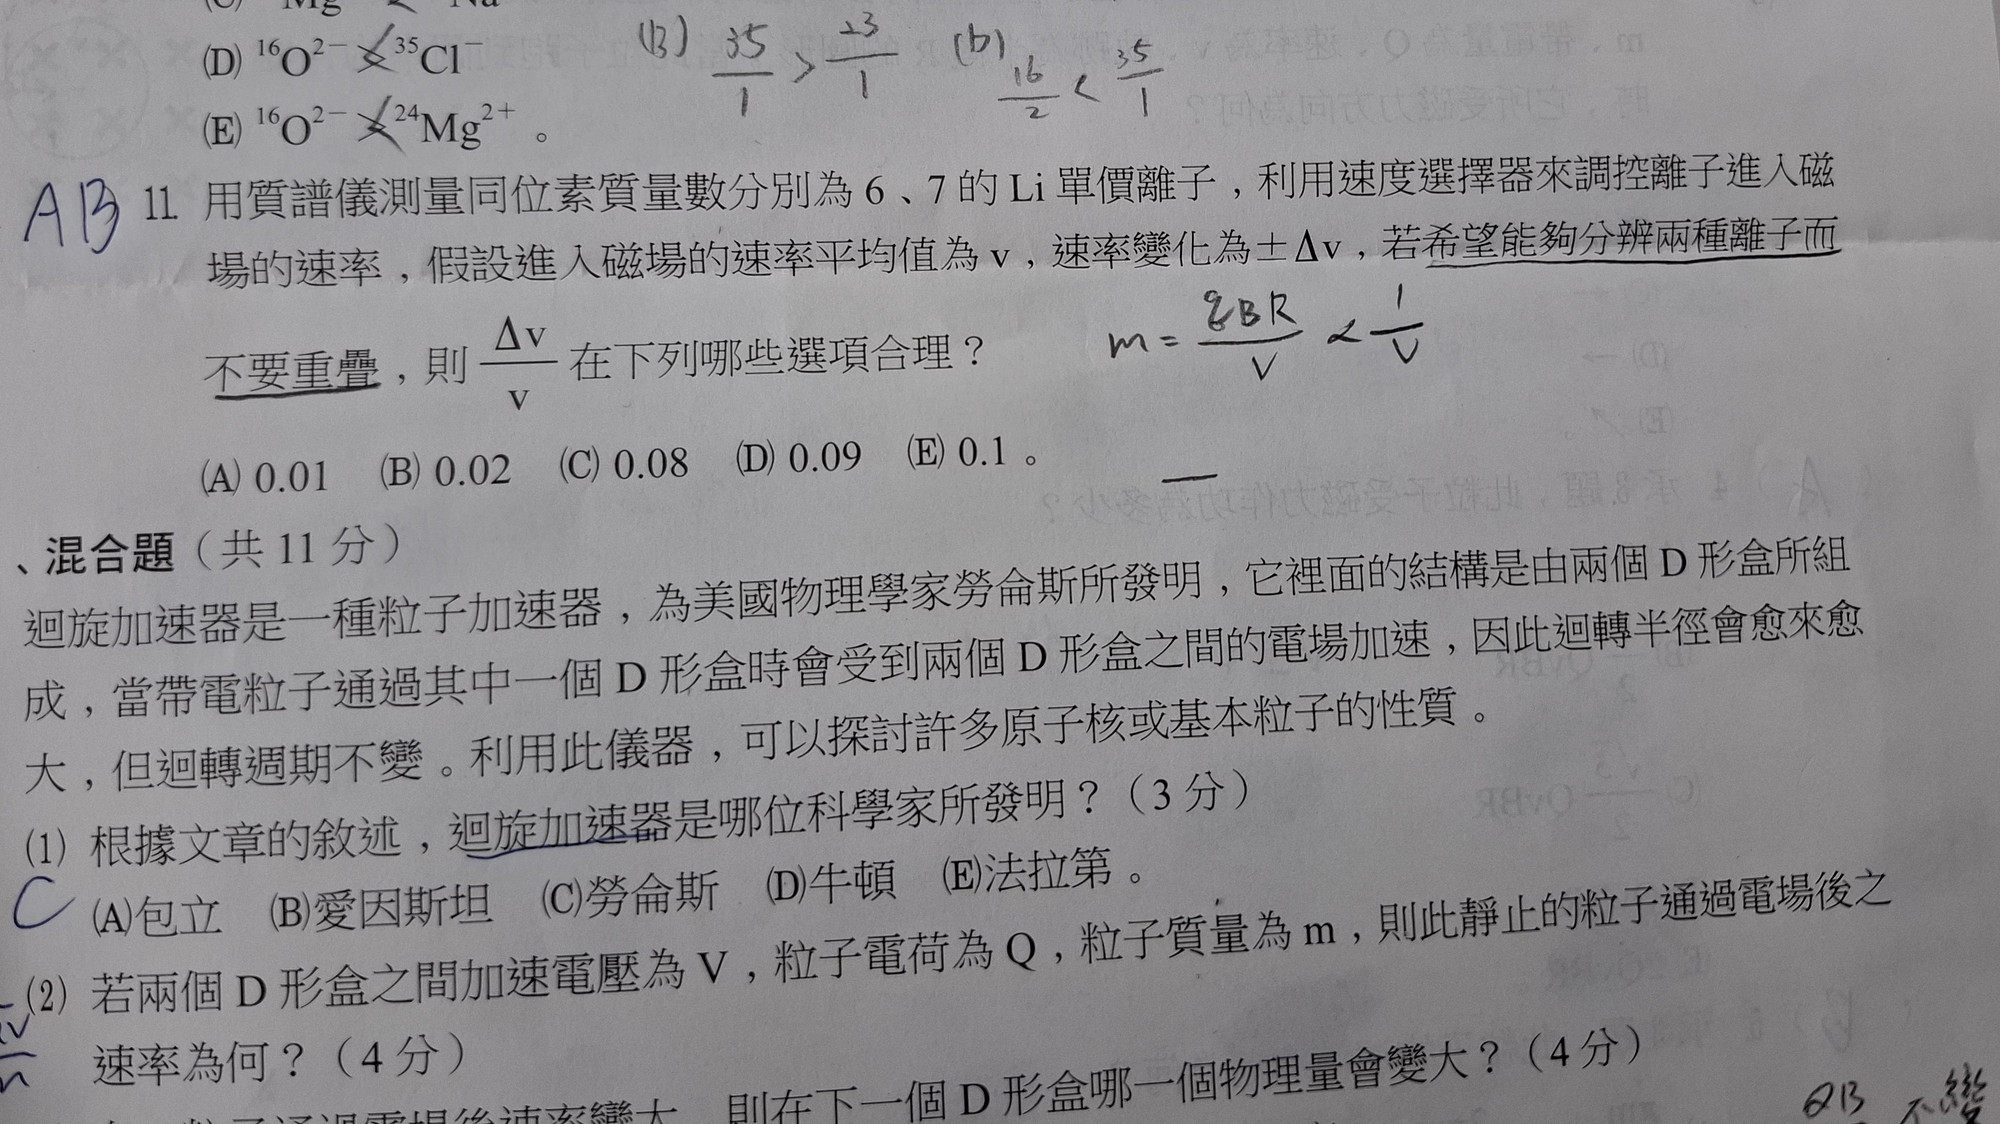 (C) Mg < Na
(D) ¹⁶O²⁻ < ³⁵Cl⁻
(B) 35/1 > 23/1 (D) 16/2 < 35/1
(E) ¹⁶O²⁻ < ²⁴Mg²⁺。
AB 11. 用質譜儀測量同位素質量數分別為 6、7 的 Li 單價離子，利用速度選擇器來調控離子進入磁
場的速率，假設進入磁場的速率平均值為 v，速率變化為±Δv，若希望能夠分辨兩種離子而
不要重疊，則 Δv/v 在下列哪些選項合理？ m = qBR/V ∝ 1/V
(A) 0.01 (B) 0.02 (C) 0.08 (D) 0.09 (E) 0.1。
、混合題（共 11 分）
迴旋加速器是一種粒子加速器，為美國物理學家勞侖斯所發明，它裡面的結構是由兩個 D 形盒所組
成，當帶電粒子通過其中一個 D 形盒時會受到兩個 D 形盒之間的電場加速，因此迴轉半徑會愈來愈
大，但迴轉週期不變。利用此儀器，可以探討許多原子核或基本粒子的性質。
(1) 根據文章的敘述，迴旋加速器是哪位科學家所發明？（3 分）
C (A)包立 (B)愛因斯坦 (C)勞侖斯 (D)牛頓 (E)法拉第。
(2) 若兩個 D 形盒之間加速電壓為 V，粒子電荷為 Q，粒子質量為 m，則此靜止的粒子通過電場後之
速率為何？（4 分）
粒子通過電場後速率變大，則在下一個 D 形盒哪一個物理量會變大？（4 分）
QB 不變